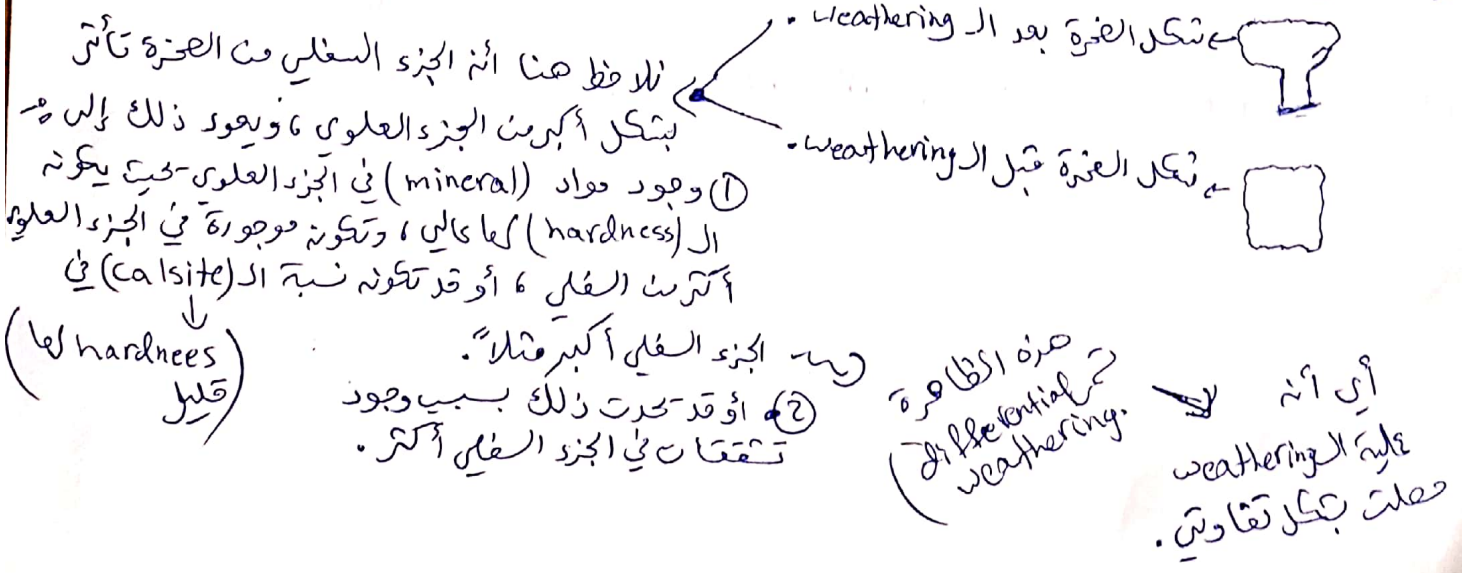 ← شكل الصخرة بعد الـ weathering .
← شكل الصخرة قبل الـ weathering .
نلاحظ هنا أنه الجزء السفلي من الصخرة تأثر
بشكل أكبر من الجزء العلوي ، ويعود ذلك إلى :-
① وجود مواد (mineral) في الجزء العلوي بحيث يكونه
الـ (hardness) لها عالي ، وتكونه موجودة في الجزء العلوي
أكثر من السفلي ، أو قد تكونه نسبة الـ (calsite) في
الجزء السفلي أكبر مثلاً .
(لها hardnees
قليل)
② أو قد تحدث ذلك بسبب وجود
تشققات في الجزء السفلي أكثر .
هذه الظاهرة
differential
weathering.
أي أنه
عملية الـ weathering
حصلت بشكل تفاوتي .